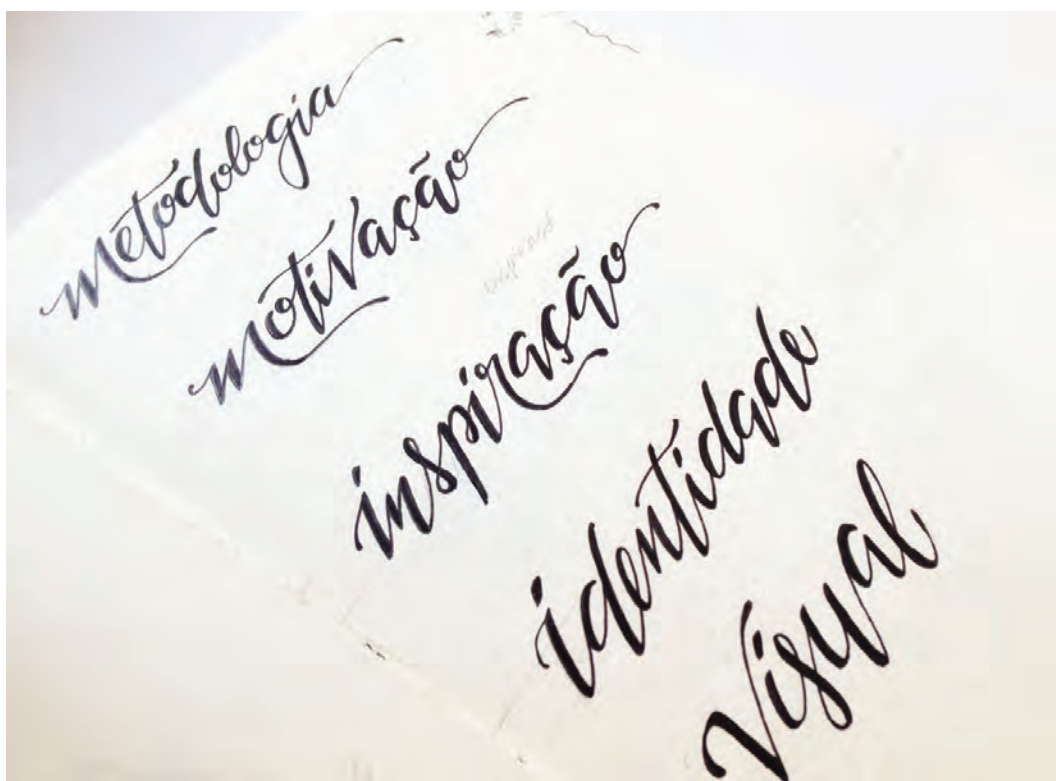 Metodologia
Motivação
inspiração
identidade
Visual